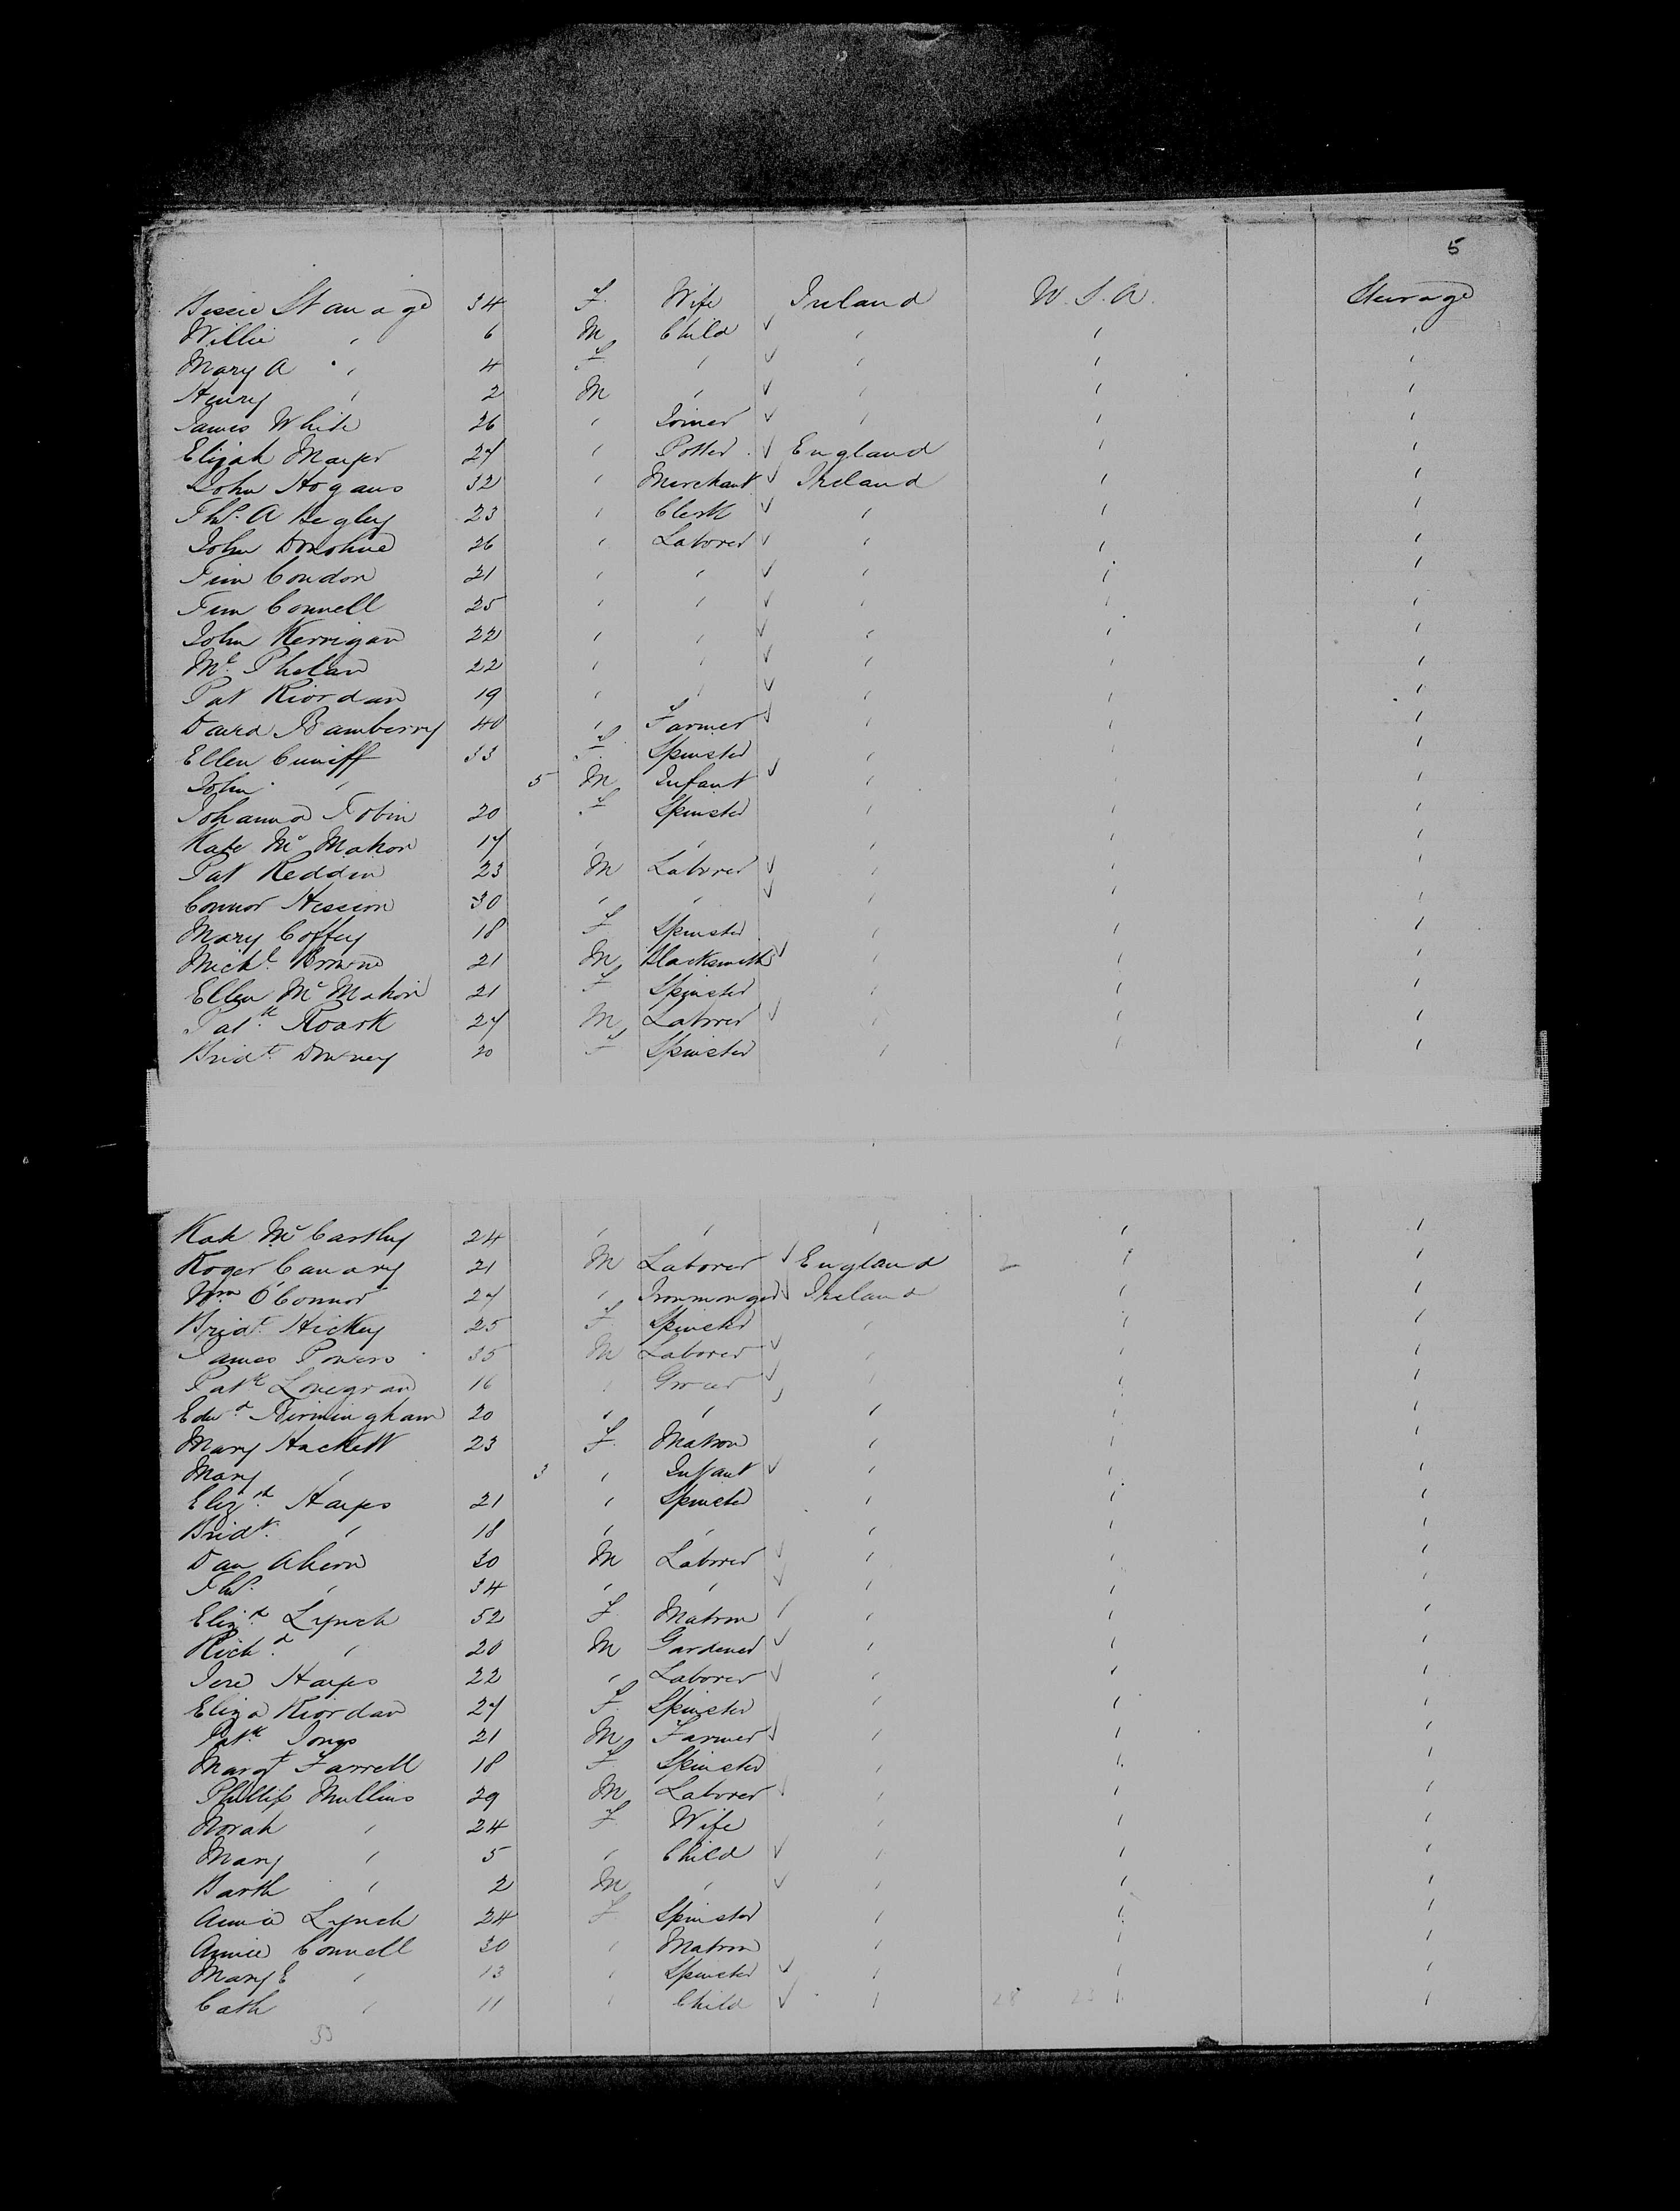 5
Bessie Stanage 34 F. Wife Ireland U.S.A. Steerage
Willie " 6 M Child ✓ " " "
Mary A " 4 F " ✓ " " "
Henry " 2 M " ✓ " " "
James White 26 " Joiner ✓ " " "
Elijah Mayer 27 " Potter ✓ England " "
John Hogans 32 " Merchant ✓ Ireland " "
Thos. A Begley 23 " Clerk ✓ " " "
John Donohue 26 " Laborer ✓ " " "
Tim Condon 21 " " ✓ " " "
Tim Connell 25 " " ✓ " " "
John Kerrigan 22 " " ✓ " " "
Ml. Phelan 22 " " ✓ " " "
Pat Riordan 19 " " ✓ " " "
David Bamberry 40 " Farmer ✓ " " "
Ellen Cuniff 33 F. Spinster " " "
John " 5 M Infant ✓ " " "
Johanna Tobin 20 F Spinster " " "
Kate McMahon 17 " " " " "
Pat Reddin 23 M Laborer ✓ " " "
Connor Hession 30 " " ✓ " " "
Mary Coffey 18 F Spinster " " "
Michl. Browne 21 M Blacksmith ✓ " " "
Ellen McMahon 21 F Spinster " " "
Patk. Roark 27 M Laborer ✓ " " "
Bridt. Downey 20 F Spinster " " "
Kate McCarthy 24 " " " " "
Roger Canary 21 M Laborer ✓ England " "
Wm O'Connor 27 " Ironmonger ✓ Ireland " "
Bridt. Hickey 25 F. Spinster " " "
James Powers 35 M Laborer ✓ " " "
Patk Lonegran 16 " Grocer ✓ " " "
Edwd. Birmingham 20 " " ✓ " " "
Mary Hackett 23 F. Matron " " "
Mary " 3 " Infant ✓ " " "
Elizth. Hayes 21 " Spinster " " "
Bridt. " 18 " " " " "
Dan Ahern 30 M Laborer ✓ " " "
Thos. " 34 " " ✓ " " "
Elizh. Lynch 52 F. Matron " " " "
Richd. " 20 M Gardener ✓ " " "
Jere Hayes 22 " Laborer ✓ " " "
Eliza Riordan 27 F. Spinster " " "
Patk. Jones 21 M Farmer ✓ " " "
Margt Farrell 18 F Spinster " " "
Phillip Mullins 29 M Laborer ✓ " " "
Norah " 24 F. Wife " " "
Mary " 5 " Child ✓ " " "
Barth " 2 M " ✓ " " "
Annie Lynch 24 F. Spinster " " "
Annie Connell 30 " Matron " " "
Mary E " 13 " Spinster ✓ " " "
Cath " 11 " Child ✓ " 28 23 " "
53